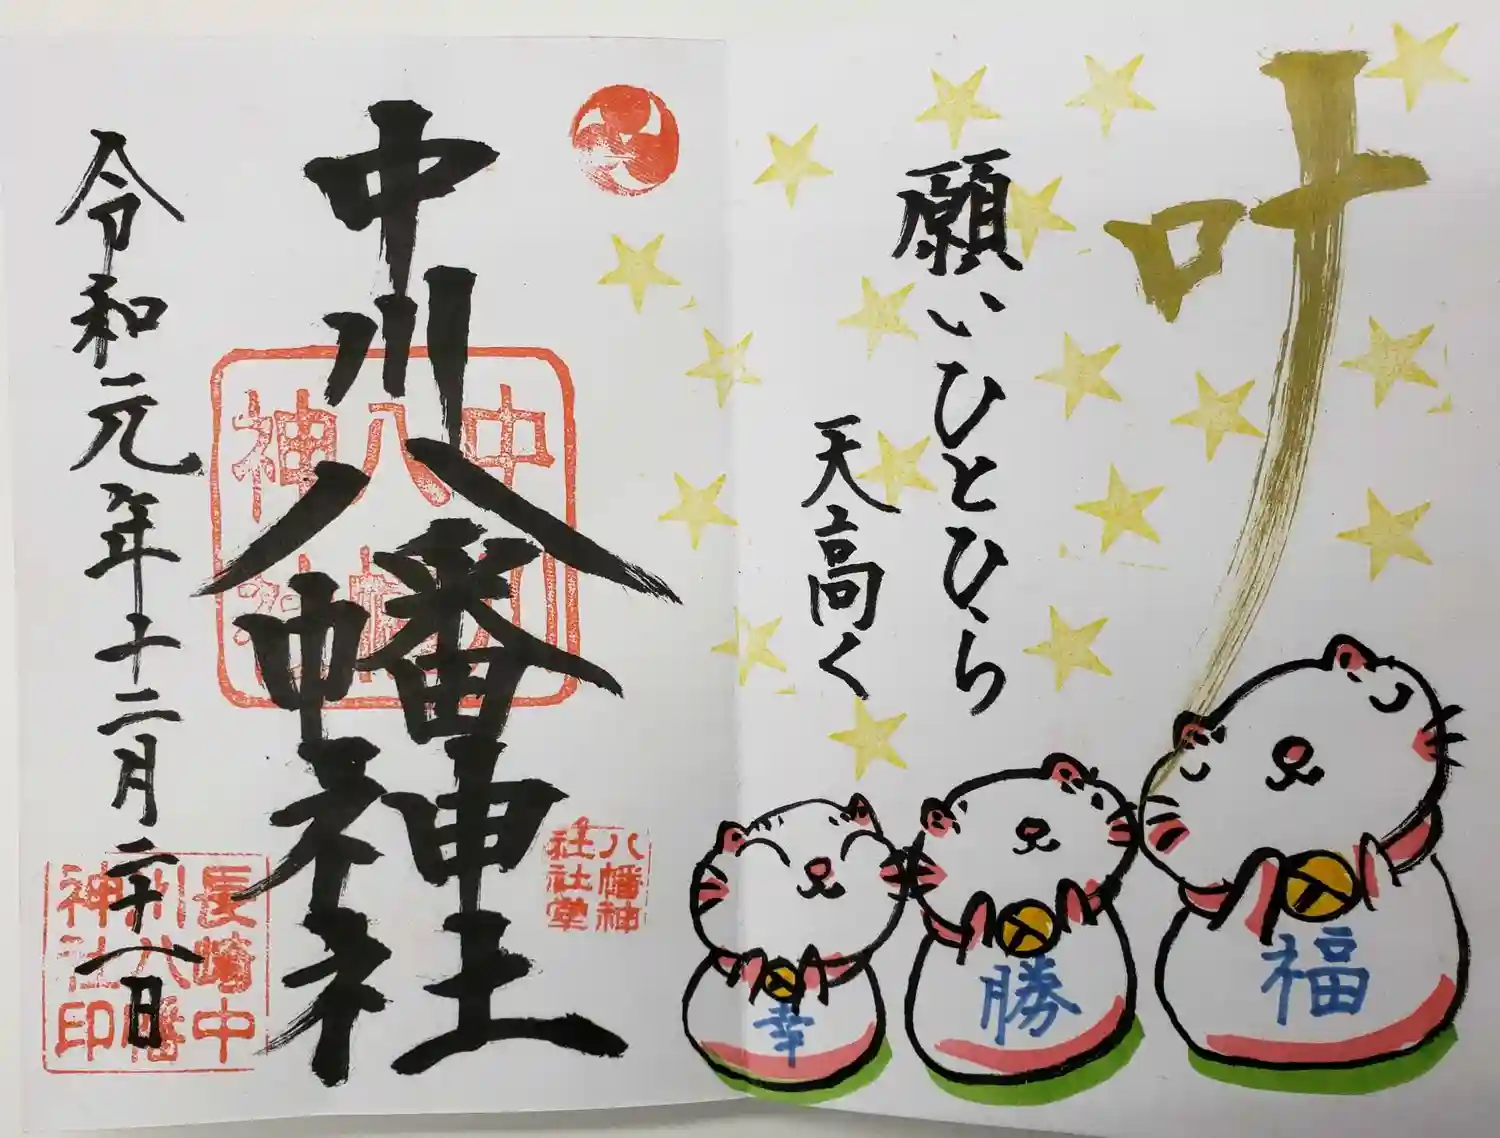 叶
願いひとひら
天高く
幸
勝
福
中川八幡神社
令和元年十二月二十八日
中川
八幡
神社
八幡神
社社堂
長崎中
川八幡
神社印